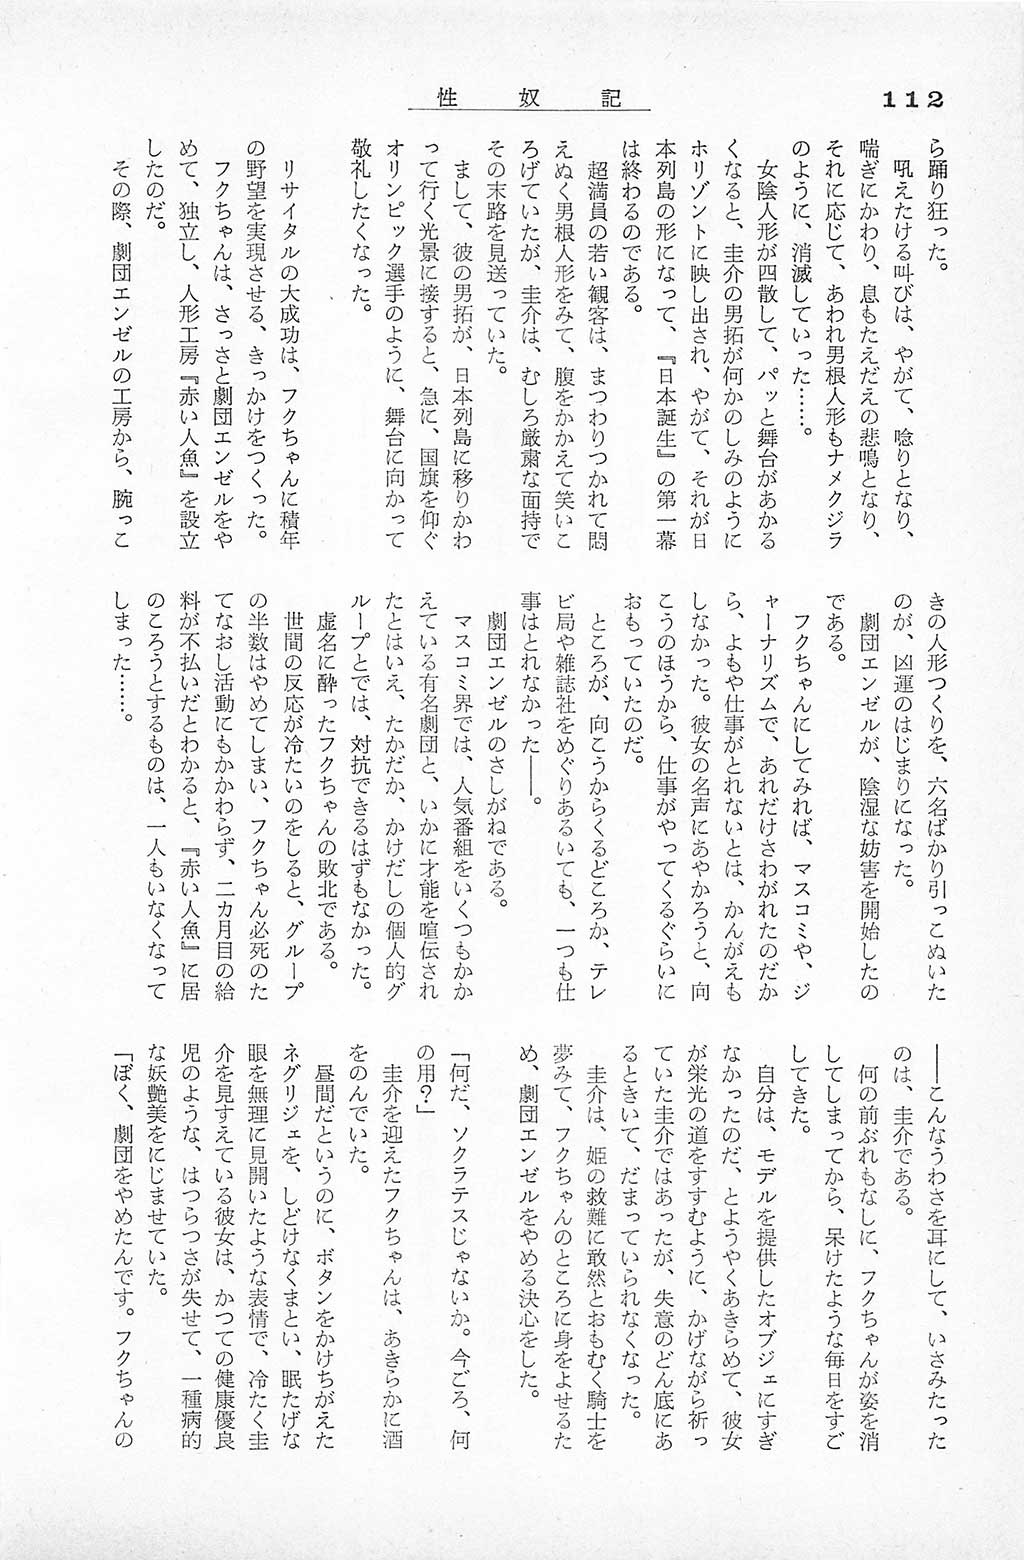 性奴記
112
ら踊り狂った。
吼えたける叫びは、やがて、唸りとなり、
喘ぎにかわり、息もたえだえの悲鳴となり、
それに応じて、あわれ男根人形もナメクジラ
のように、消滅していった……。
女陰人形が四散して、パッと舞台があかる
くなると、圭介の男拓が何かのしみのように
ホリゾントに映し出され、やがて、それが日
本列島の形になって、『日本誕生』の第一幕
は終わるのである。
超満員の若い観客は、まつわりつかれて悶
えぬく男根人形をみて、腹をかかえて笑いこ
ろげていたが、圭介は、むしろ厳粛な面持で
その末路を見送っていた。
まして、彼の男拓が、日本列島に移りかわ
って行く光景に接すると、急に、国旗を仰ぐ
オリンピック選手のように、舞台に向かって
敬礼したくなった。
リサイタルの大成功は、フクちゃんに積年
の野望を実現させる、きっかけをつくった。
フクちゃんは、さっさと劇団エンゼルをや
めて、独立し、人形工房『赤い人魚』を設立
したのだ。
その際、劇団エンゼルの工房から、腕っこ
きの人形つくりを、六名ばかり引っこぬいた
のが、凶運のはじまりになった。
劇団エンゼルが、陰湿な妨害を開始したの
である。
フクちゃんにしてみれば、マスコミや、ジ
ャーナリズムで、あれだけさわがれたのだか
ら、よもや仕事がとれないとは、かんがえも
しなかった。彼女の名声にあやかろうと、向
こうのほうから、仕事がやってくるぐらいに
おもっていたのだ。
ところが、向こうからくるどころか、テレ
ビ局や雑誌社をめぐりあるいても、一つも仕
事はとれなかった――。
劇団エンゼルのさしがねである。
マスコミ界では、人気番組をいくつもかか
えている有名劇団と、いかに才能を喧伝され
たとはいえ、たかだか、かけだしの個人的グ
ループとでは、対抗できるはずもなかった。
虚名に酔ったフクちゃんの敗北である。
世間の反応が冷たいのをしると、グループ
の半数はやめてしまい、フクちゃん必死のた
てなおし活動にもかかわらず、二カ月目の給
料が不払いだとわかると、『赤い人魚』に居
のころうとするものは、一人もいなくなって
しまった……。
――こんなうわさを耳にして、いさみたった
のは、圭介である。
何の前ぶれもなしに、フクちゃんが姿を消
してしまってから、呆けたような毎日をすご
してきた。
自分は、モデルを提供したオブジェにすぎ
なかったのだ、とようやくあきらめて、彼女
が栄光の道をすすむように、かげながら祈っ
ていた圭介ではあったが、失意のどん底にあ
るときいて、だまっていられなくなった。
圭介は、姫の救難に敢然とおもむく騎士を
夢みて、フクちゃんのところに身をよせるた
め、劇団エンゼルをやめる決心をした。
「何だ、ソクラテスじゃないか。今ごろ、何
の用？」
圭介を迎えたフクちゃんは、あきらかに酒
をのんでいた。
昼間だというのに、ボタンをかけちがえた
ネグリジェを、しどけなくまとい、眠たげな
眼を無理に見開いたような表情で、冷たく圭
介を見すえている彼女は、かつての健康優良
児のような、はつらつさが失せて、一種病的
な妖艶美をにじませていた。
「ぼく、劇団をやめたんです。フクちゃんの